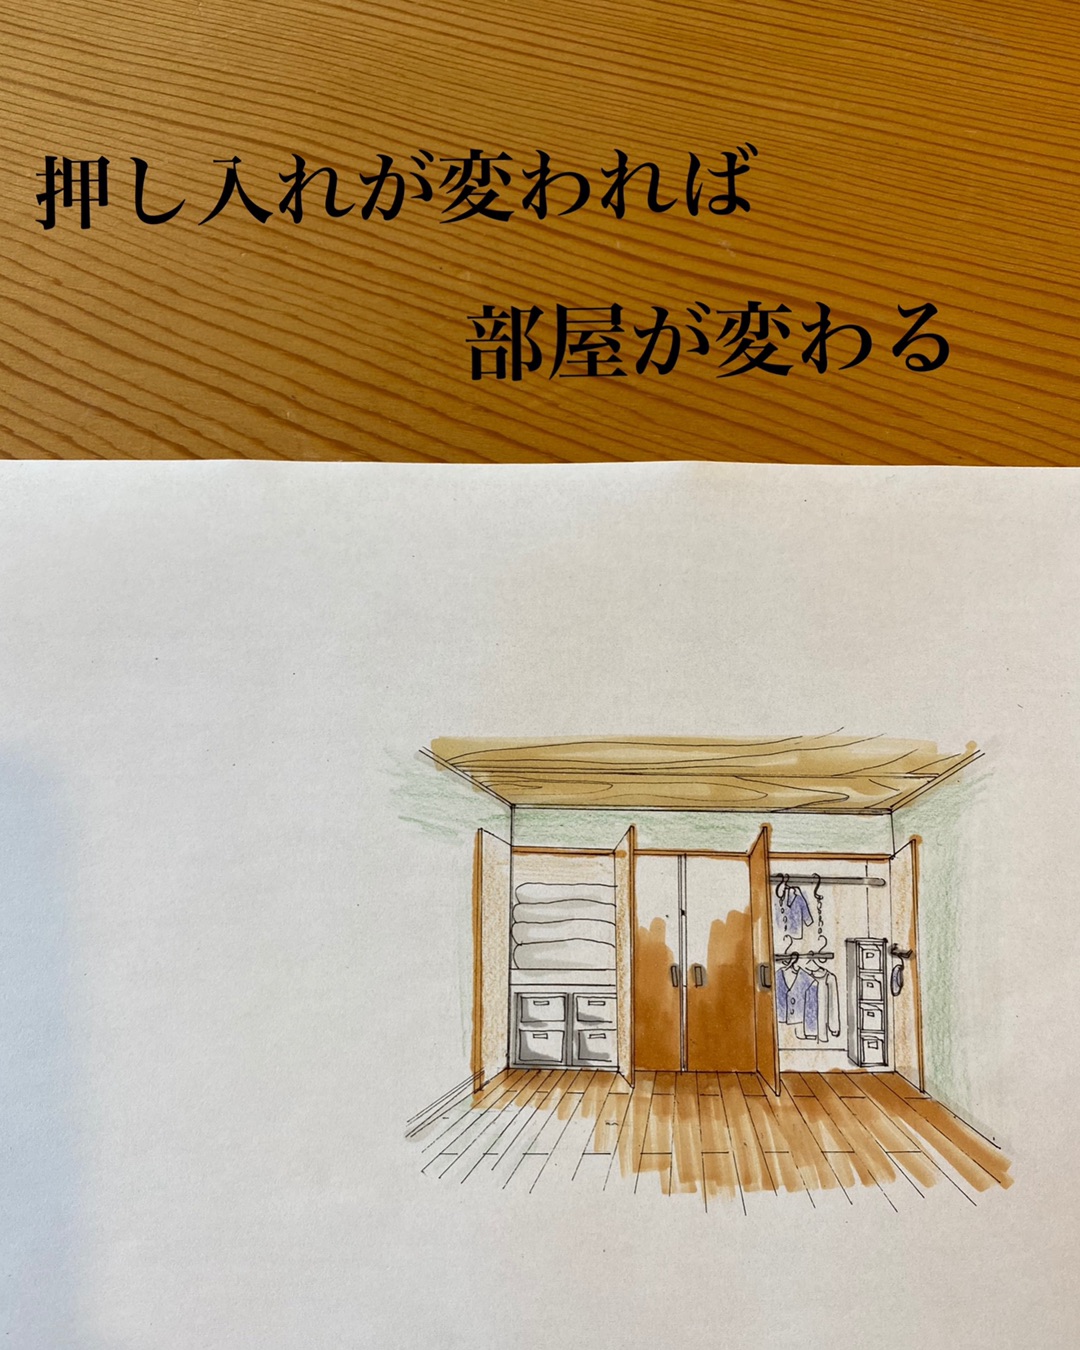 押し入れが変われば
部屋が変わる